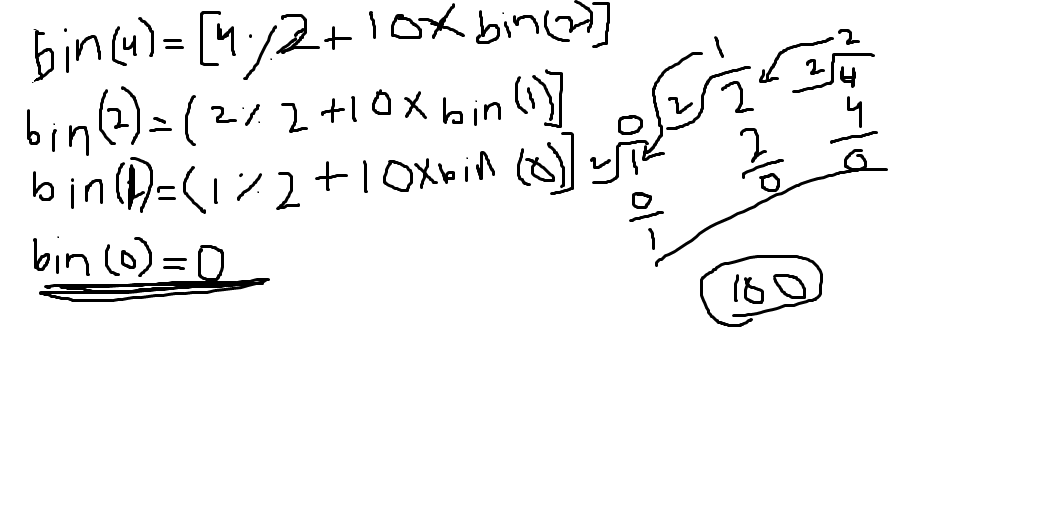 bin(4)=[4%2+10×bin(2)]
bin(2)=(2%2+10×bin(1)]
bin(1)=(1%2+10×bin(0)]
bin(0)=0
2
2 4
4
0
1
2 2
2
0
0
2 1
0
1
100